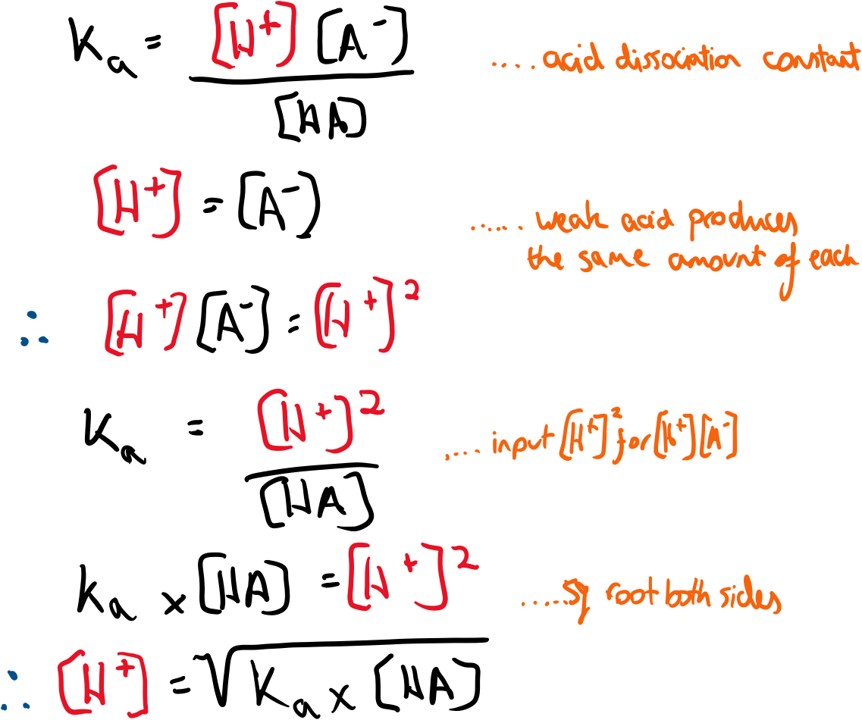 Ka = [H⁺] [A⁻] / [HA] .... acid dissociation constant
[H⁺] = [A⁻]
..... weak acid produces
the same amount of each
∴ [H⁺] [A⁻] = [H⁺]²
Ka = [H⁺]² / [HA] .... input [H⁺]² for [H⁺][A⁻]
Ka × [HA] = [H⁺]² ..... sq root both sides
∴ [H⁺] = √Ka × [HA]